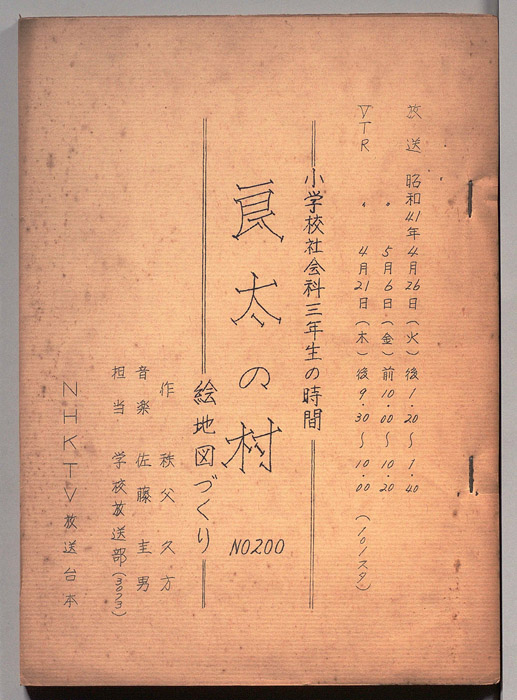 放送 昭和41年4月26日(火)後1.20〜1.40
〃 5月6日(金)前10.00〜10.20
VTR 〃 4月21日(木)後9.30〜10.00 (101スタ)
小学校社会科三年生の時間
良太の村 NO200
絵地図づくり
作 秩父久方
音楽 佐藤圭男
担当 学校放送部(3073)
NHKTV放送台本